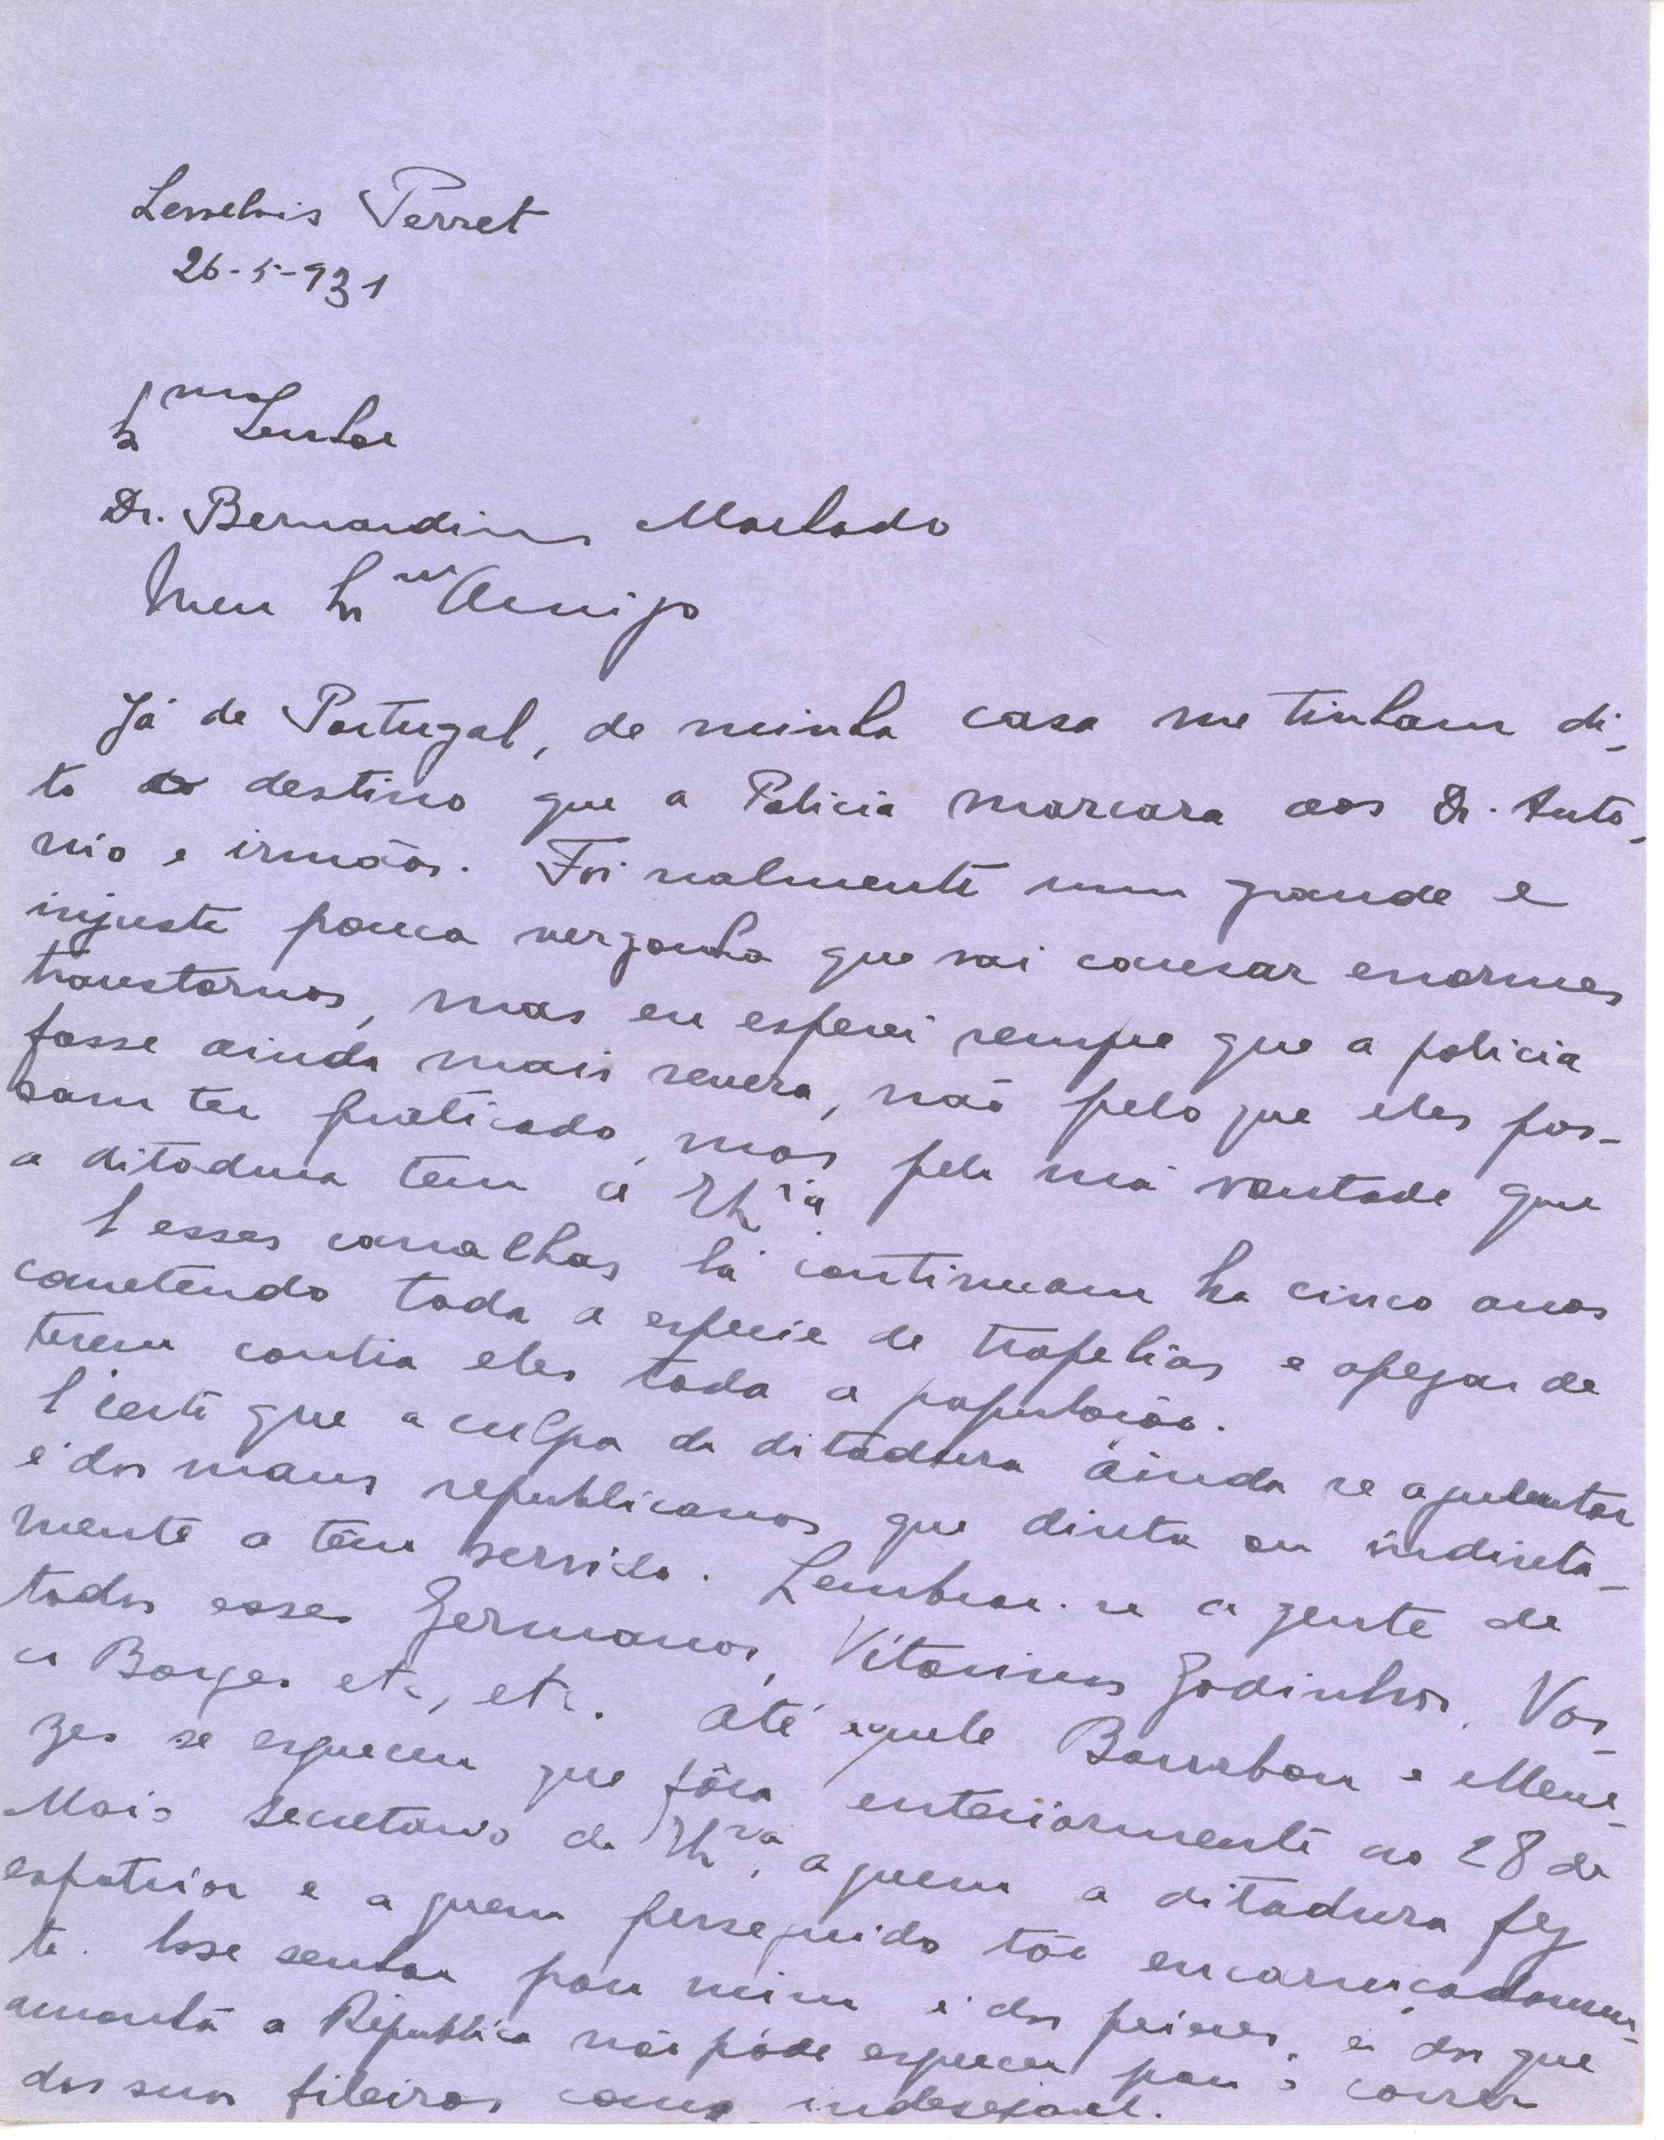 Perret
26-5-931
Exmo Senhor
Dr. Bernardino Machado
Meu Exmo Amigo
Já de Portugal, de minha casa me tinham di-
to o destino que a Policia marcara aos Dr. Antó-
nio e irmãos. Foi realmente uma grande e
injusta pouca vergonha que vai causar enormes
transtornos, mas eu esperei sempre que a policia
fosse ainda mais severa, não pelo que eles pos-
sam ter praticado, mas pela má vontade que
a ditadura tem a
E esses canalhas lá continuam ha cinco anos
cometendo toda a especie de tropelias e apezar de
terem contra eles toda a população.
É certo que a culpa da ditadura ainda se aguentar
é dos maus republicanos que direta ou indireta-
mente a têm servido. Lembrar-se a gente de
todos esses Germanos, Vitorinos Godinhos, Vas-
co Borges etc, etc. Até aquele Bourbon e Mene-
zes se esquecem que fôra anteriormente ao 28 de
Maio secretario de a quem a ditadura fez
expatriar e a quem perseguido tão encarniçadamen-
te. Esse senhor para mim é dos peiores, é dos que
amanhã a Républica não póde esquecer para o correr
das suas fileiras como indesejavel.